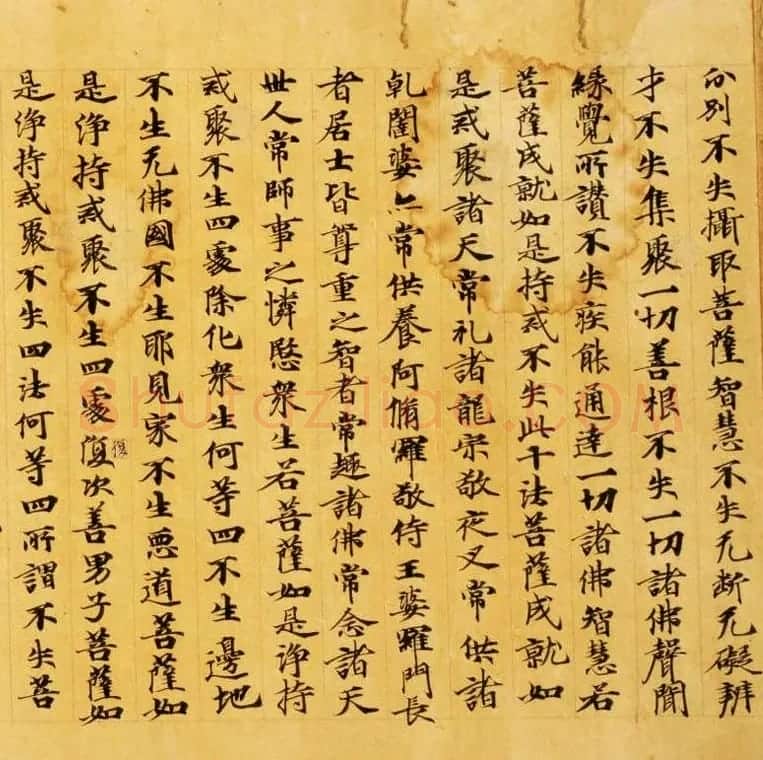 分別不失攝取菩薩智慧不失无断无礙辨
才不失集聚一切善根不失一切諸佛聲聞
緣覺所讃不失疾能通達一切諸佛智慧若
菩薩成就如是持戒不失此十法菩薩成就如
是戒聚諸天常礼諸龍宗敬夜叉常供諸
乹闥婆亦常供養阿脩羅敬侍王婆羅門長
者居士皆尊重之智者常趣諸佛常念諸天
世人常師事之憐愍衆生若菩薩如是淨持
戒聚不生四處除化衆生何等四不生邊地
不生无佛國不生耶見家不生惡道菩薩如
是淨持戒聚不生四處復次善男子菩薩如
復
是淨持戒聚不失四法何等四所謂不失菩
Shufaziliao.com